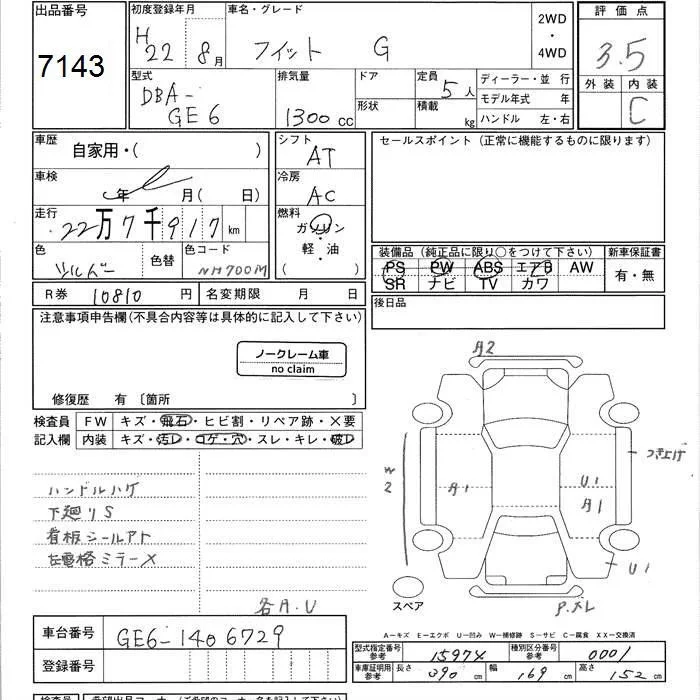 出品番号
7143
初度登録年月
H22 8月
車名・グレード
フィット G
2WD
・
4WD
評価点
3.5
外装 内装
C
型式
DBA-
GE6
排気量
1300 cc
ドア
形状
定員 5人
積載 kg
ディーラー・並 行
モデル年式 年
ハンドル 左・右
車歴
自家用・( )
車検
年 月( 日)
走行
22万7千917 km
色
シルバー
色替
色コード
NH700M
シフト
AT
冷房
AC
燃料
ガソリン
・
軽・油
( )
セールスポイント(正常に機能するものに限ります)
装備品(純正品に限り○をつけて下さい)
PS PW ABS エアB AW
SR ナビ TV カワ
新車保証書
有・無
R券 10810 円
名変期限 月 日
後日品
注意事項申告欄(不具合内容等は具体的に記入して下さい)
ノークレーム車
no claim
修復歴 有 〔箇所 〕
検査員
記入欄
FW キズ・飛石・ヒビ割・リペア跡・×要
内装 キズ・汚レ・コゲ・穴・スレ・キレ・破レ
ハンドルハゲ
下廻りS
看板シールアト
左電格ミラー×
各A.U
A2
W2
A1
U1
A1
つき上げ
U1
P.ズレ
スペア
A−キズ E−エクボ U−凹み W−補修跡 S−サビ C−腐食 XX−交換済
車台番号
GE6-1406729
登録番号
型式指定番号
参考
15974
種別区分番号
参考
0001
車庫証明用
参考
長さ 390 cm
幅 169 cm
高さ 152 cm